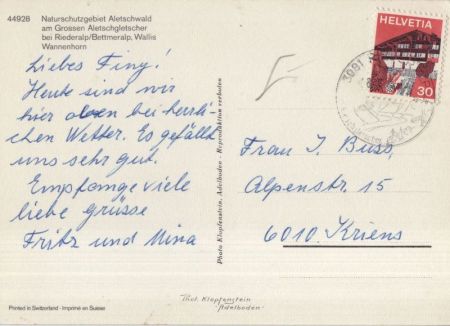 44928 Naturschutzgebiet Aletschwald
am Grossen Aletschgletscher
bei Riederalp/Bettmeralp, Wallis
Wannenhorn
Liebes Finy!
Heute sind wir
hier oben bei herrli-
chen Wetter. Es gefällt
uns sehr gut.
Empfange viele
liebe grüsse
Fritz und Mina
Printed in Switzerland - Imprimé en Suisse
Photo Klopfenstein, Adelboden - Reproduktion verboten
HELVETIA
30
Frau J. Buss,
Alpenstr. 15
6010 Kriens
Phot. Klopfenstein
Adelboden